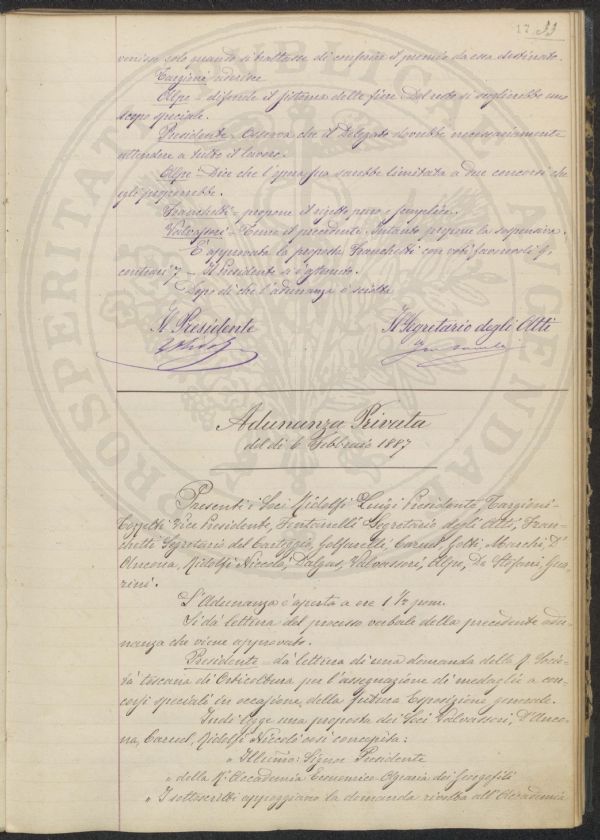 17 33
venisse solo quando si trattasse di conferire il premio da essa destinato.
Targioni aderisce
Alpe = difende il sistema delle fiere. Del resto si sceglierebbe uno
scopo speciale.
Presidente Osserva che il Delegato dovrebbe necessariamente
attendere a tutto il lavoro.
Alpe = Dice che l'opera sua sarebbe limitata a due concorsi che
egli proporrebbe.
Franchetti = propone il rigetto puro e semplice.
Valvassori = Come il precedente. Intanto propone la
È approvata la proposta Franchetti con voti favorevoli 9,
contrari 7 = Il Presidente si è astenuto.
Dopo di che l'adunanza è sciolta
Il Presidente Il Segretario degli Atti
Adunanza Privata
del dì 6 Febbraio 1887
Presenti i Soci Ridolfi Luigi Presidente, Targioni-
Tozzetti Vice Presidente, Fontanelli Segretario degli Atti, Fran-
chetti Segretario del Carteggio, Golfarelli, Caruel, Gotti, Marchi, D'
Ancona, Ridolfi Niccolò, Dalgas, Valvassori, Alpe, De Stefani, Gua-
rini.
L'Adunanza è aperta a ore 1 ½ pom.
Si dà lettura del processo verbale della precedente adu-
nanza che viene approvato.
Presidente = dà lettura di una domanda della R. Socie-
tà toscana di Orticoltura per l'assegnazione di medaglie a con-
corsi speciali in occasione della futura Esposizione generale.
Indi legge una proposta dei Soci Valvassori, D'Anco-
na, Caruel, Ridolfi Niccolò così concepita:
„ Illustrmo: Signor Presidente
„ della R. Accademia Economico-Agraria dei Georgofili
„ I sottoscritti appoggiano la domanda rivolta all'Accademia
PROSPERITATI PUBLICAE AUGENDAE